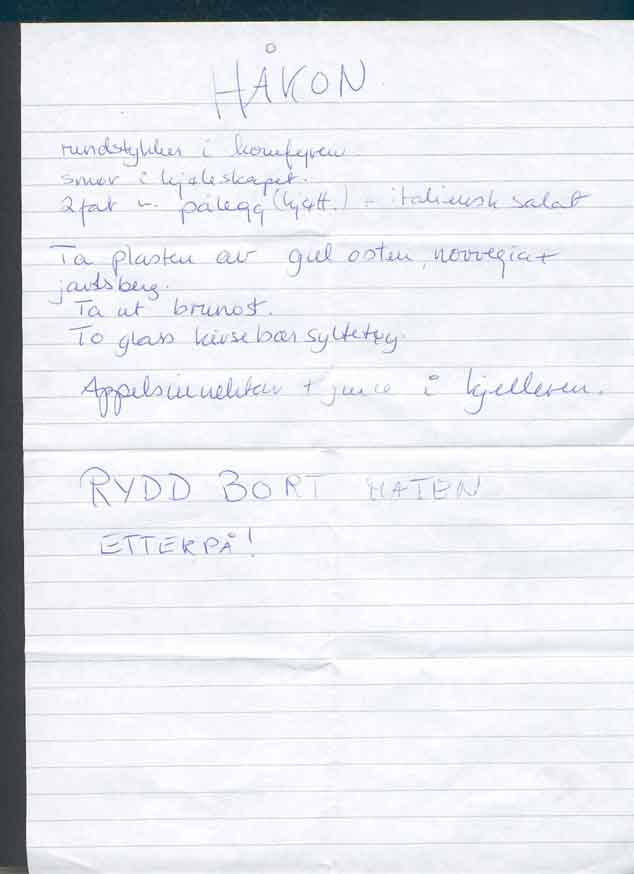 HÅKON
rundstykker i komfyren
smør i kjøleskapet.
2 fat m. pålegg (kjøtt.) + italiensk salat
Ta plasten av gul osten, norvegia +
jarlsberg.
Ta ut brunost.
To glass kirsebærsyltetøy.
Appelsinnektar + juice i kjelleren.
RYDD BORT MATEN
ETTERPÅ!